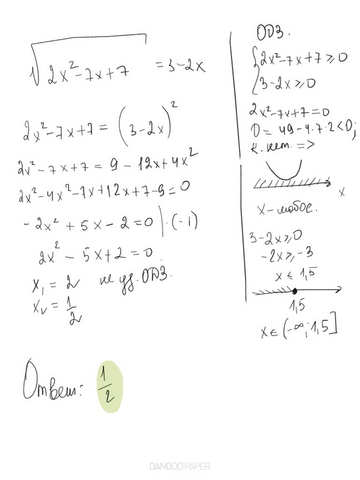 √2x²-7x+7 = 3-2x
2x²-7x+7 = (3-2x)²
2x²-7x+7 = 9-12x+4x²
2x²-4x²-7x+12x+7-9=0
-2x²+5x-2=0 |·(-1)
2x²-5x+2=0
x₁ = 2 не уд. ОДЗ.
x₂ = 1/2
Ответ: 1/2
ОДЗ.
{2x²-7x+7≥0
3-2x≥0
2x²-7x+7=0
D = 49-4·7·2<0;
к. нет. =>
x
x-любое.
3-2x≥0
-2x≥-3
x≤1,5
1,5
x∈(-∞;1,5]
BAMBOO PAPER